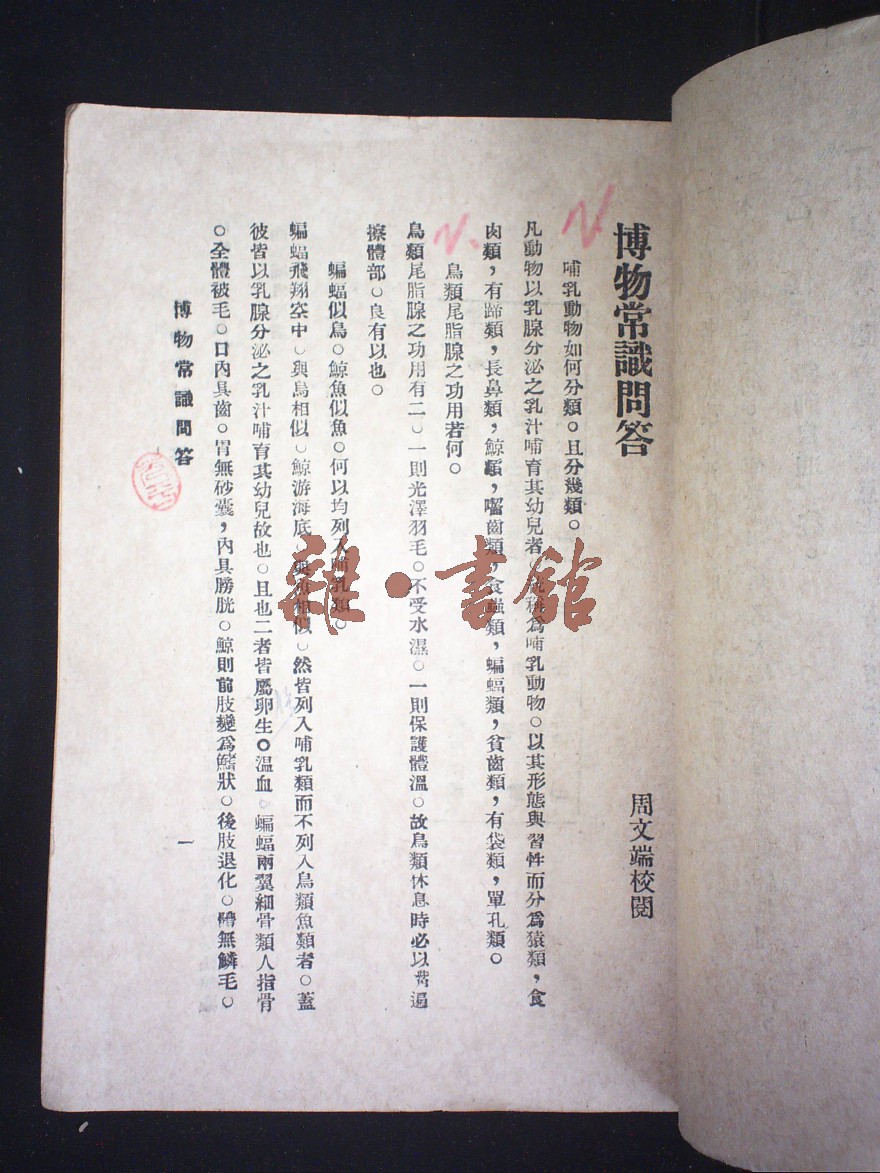 博物常識問答
周文端校閱
哺乳動物如何分類。且分幾類。
凡動物以乳腺分泌之乳汁哺育其幼兒者。統稱爲哺乳動物。以其形態與習性而分爲猿類，食
肉類，有蹄類，長鼻類，鯨類，囓齒類，食蟲類，蝙蝠類，貧齒類，有袋類，單孔類。
鳥類尾脂腺之功用若何。
鳥類尾脂腺之功用有二。一則光澤羽毛。不受水濕。一則保護體溫。故鳥類休息時必以嘴遍
擦體部。良有以也。
蝙蝠似鳥。鯨魚似魚。何以均列入哺乳類。
蝙蝠飛翔空中。與鳥相似。鯨游海底。與魚相似。然皆列入哺乳類而不列入鳥類魚類者。蓋
彼皆以乳腺分泌之乳汁哺育其幼兒故也。且也二者皆屬卵生。溫血。蝙蝠兩翼細骨類人指骨
。全體被毛。口內具齒。胃無砂囊，內具勝胱。鯨則前肢變爲鰭狀。後肢退化。體無鱗毛。
博物常識問答
一
雜·書館